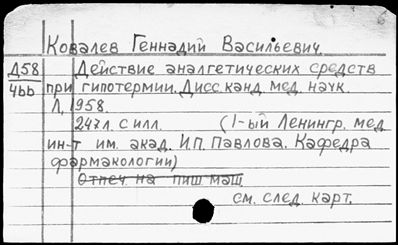 Ковалев Геннадий Васильевич.
Д58 Действие аналгетических средств
4bb при гипотермии. Дисс. канд. мед. наук.
Л, 1958.
247 л. с илл. (1-ый Ленингр. мед.
ин-т им. акад. И.П. Павлова. Кафедра
фармакологии)
Отпеч на пиш маш.
см. след. карт.